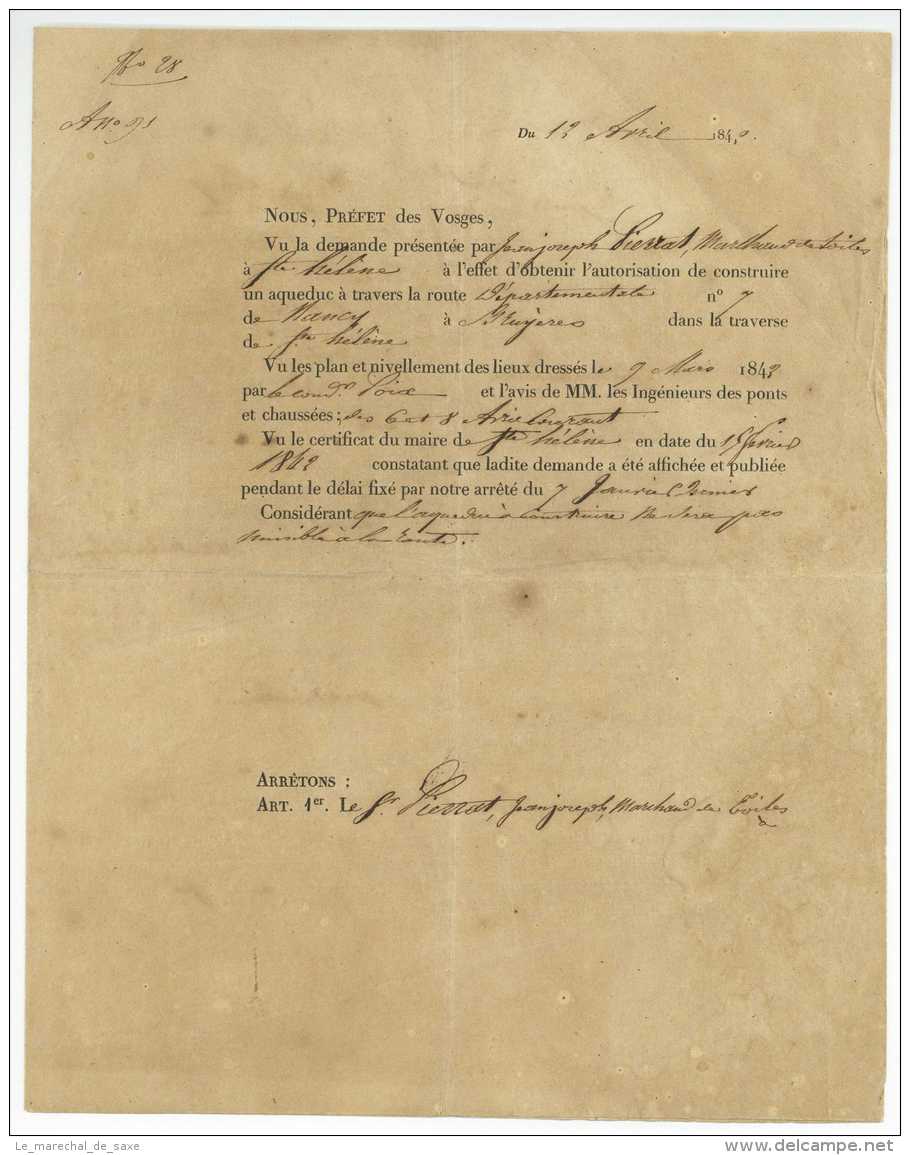 No 28
Du 12 Avril 184
NOUS, PRÉFET des Vosges,
Vu la demande présentée par Jean joseph Pierrat, Marchand de toiles
à Ste hélène à l'effet d'obtenir l'autorisation de construire
un aqueduc à travers la route Départementale n° 7
de Nancy à Bruyères dans la traverse
de Ste hélène
Vu les plan et nivellement des lieux dressés le 9 Mars 1842
par le cond.r et l'avis de MM. les Ingénieurs des ponts
et chaussées; des 6 et 8 Avril
Vu le certificat du maire de Ste hélène en date du 15 février
1842 constatant que ladite demande a été affichée et publiée
pendant le délai fixé par notre arrêté du 7 Janvier dernier
Considérant que l'aqueduc à construire ne sera pas
nuisible à la route.
ARRÊTONS :
ART. 1er. Le Sr. Pierrat, Jean joseph, Marchand de Toiles
Le_marechal_de_saxe
www.delcampe.net